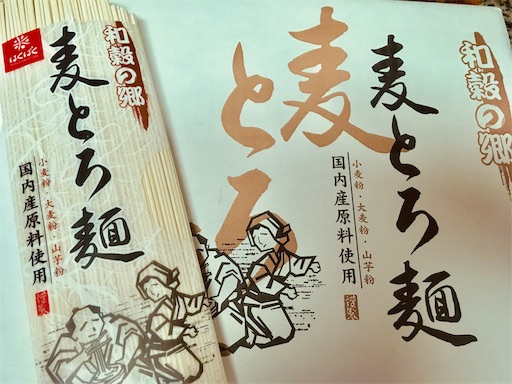 はくばく
和穀の郷
麦とろ麺
小麦粉・大麦粉・山芋粉
国内産原料使用
麦とろ
和穀の郷
麦とろ麺
小麦粉・大麦粉・山芋粉
国内産原料使用